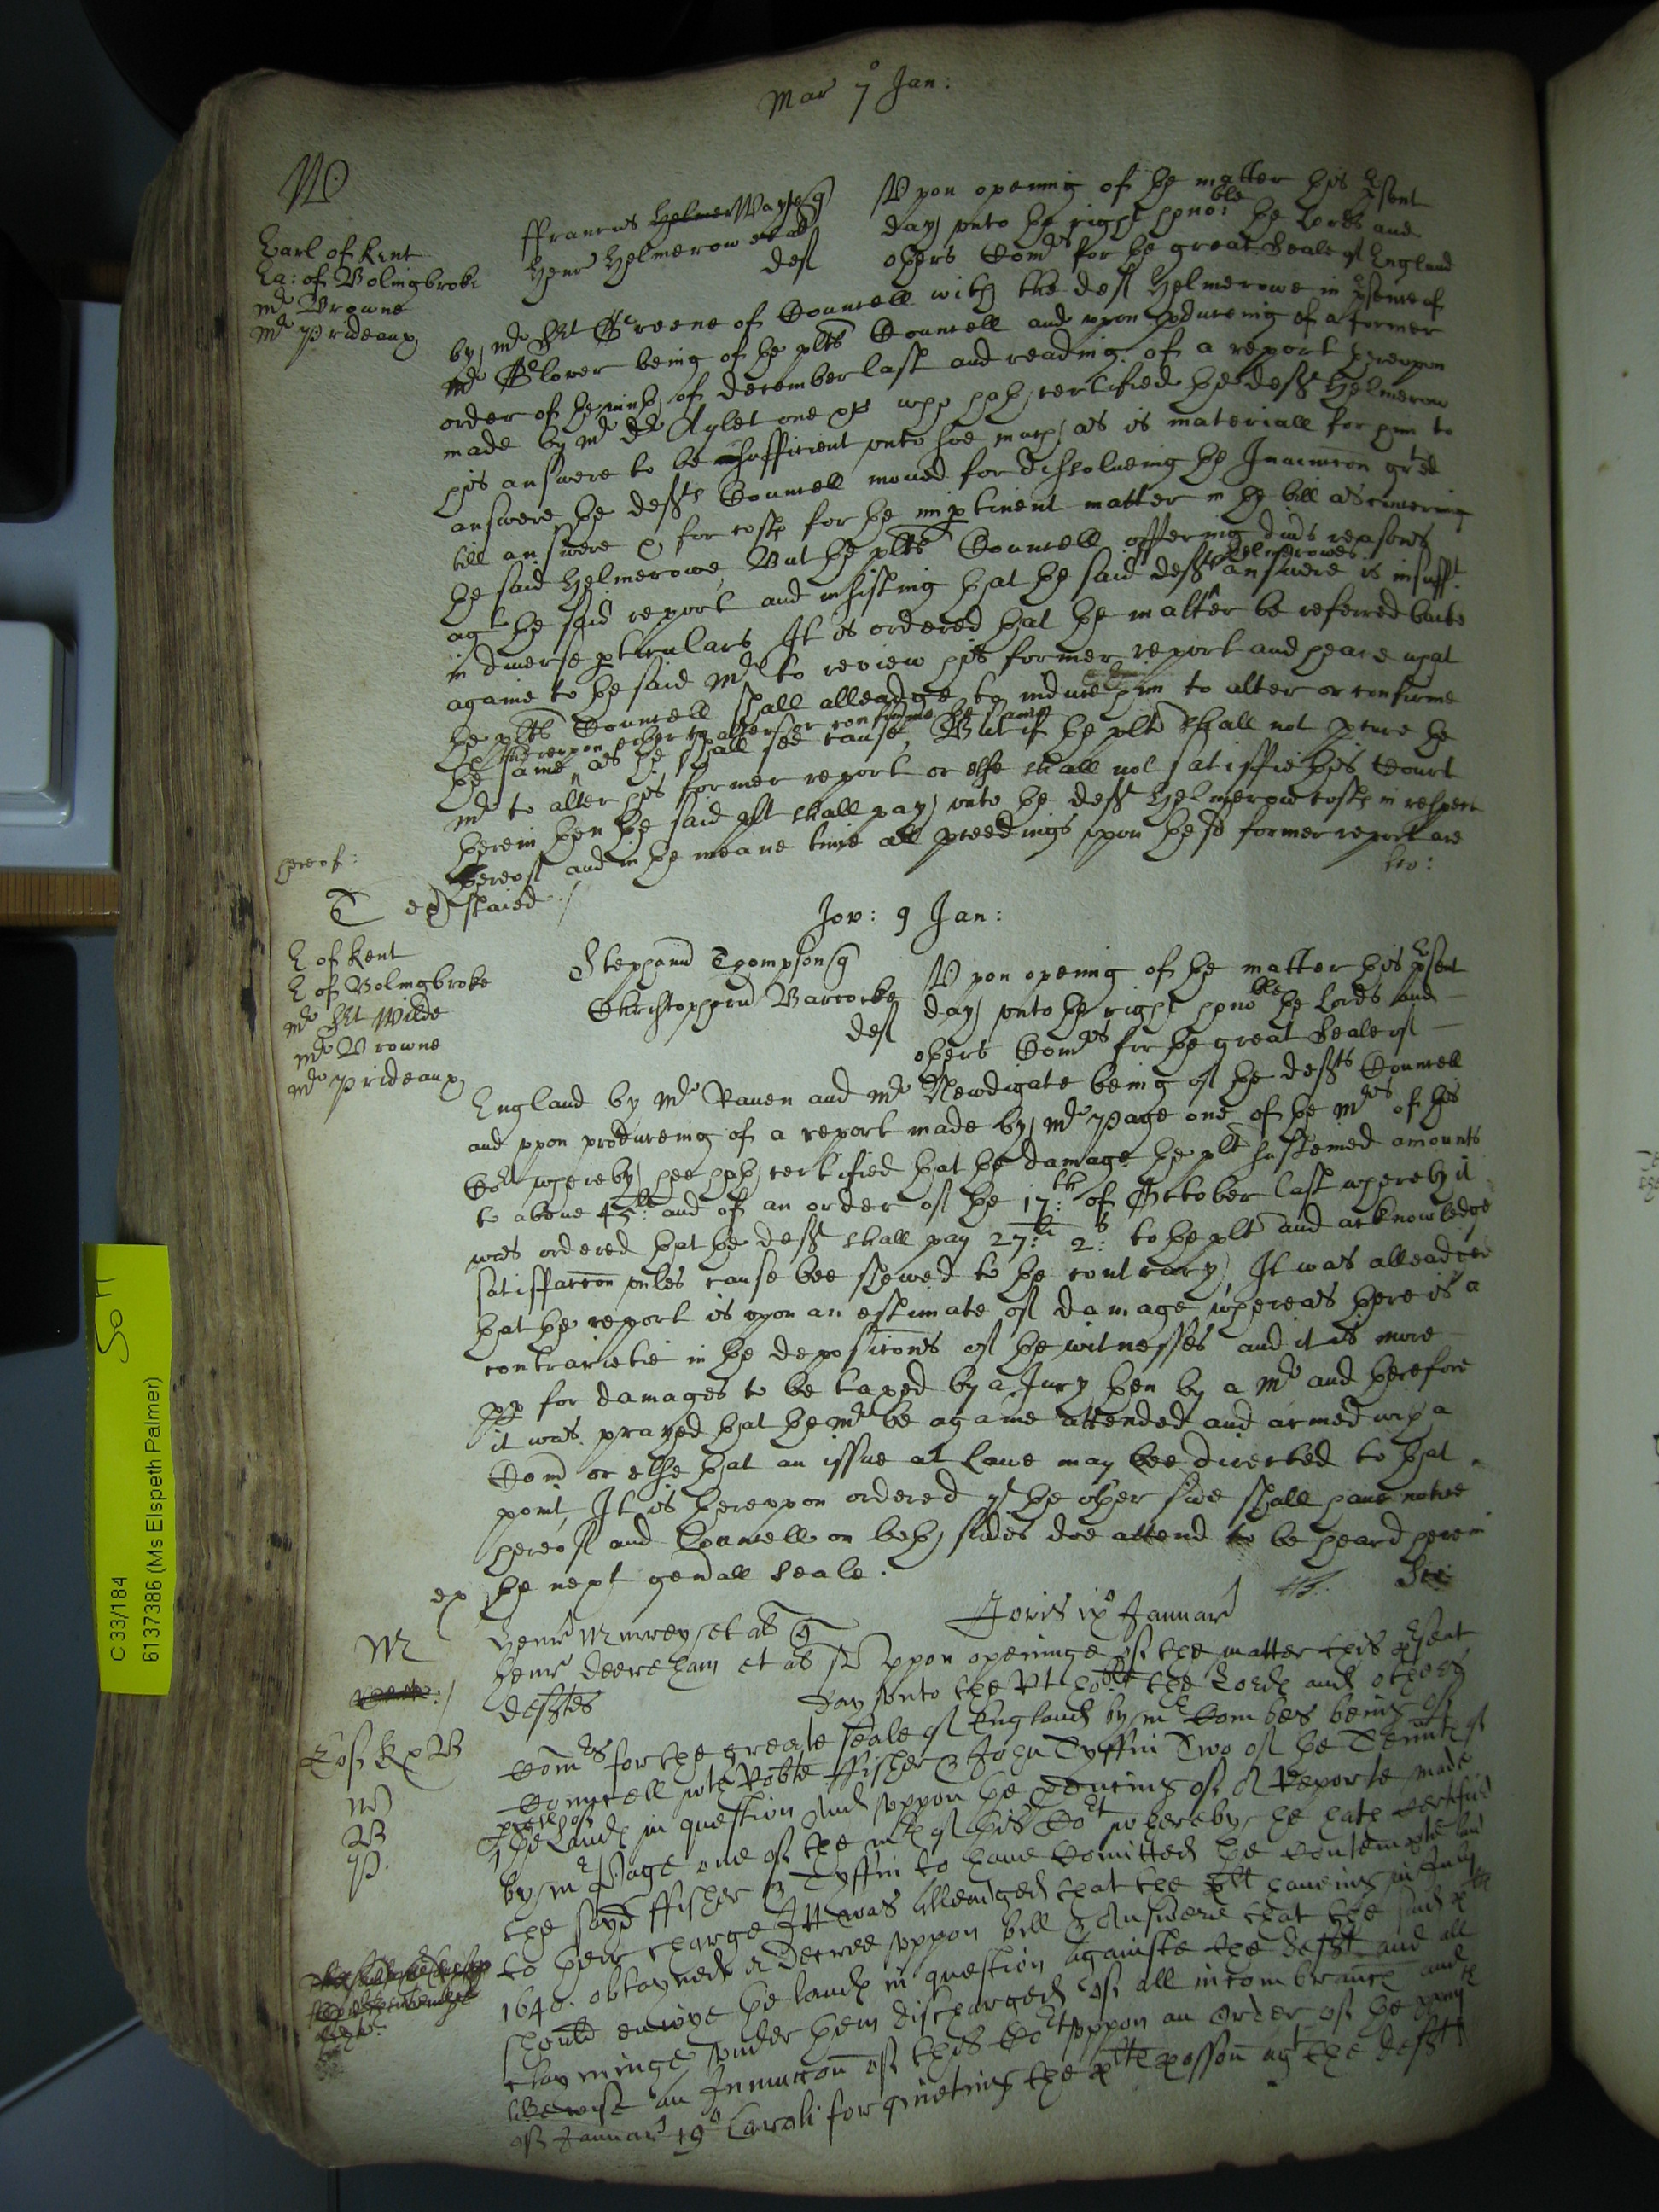 Mar 7o Jan:
W
Earl of Kent
Ea: of Bolingbroke
Mr Browne
Mr Prideaux
ffranciscus Way
Henr Helmerow et al
def
Upon opening of the matter this psent
day unto the right honoble the Lords and
others Comrs for the great Seale of England
by Mr Srt Greene of Councell with the deft Helmerowe in psence of
Mr Glover being of the plts Councell and upon pduceing of a former
order of the ninth of december last and reading of a report thereupon
made by Mr dr Aylet one &c who hath certified the defts Helmerow
his answere to be sufficient unto soe much as is materiall for him to
answere the defts Councell moved for dissolveing the Iniuncon grted
till answere & for costs for the imptinent matter in the bill as concerning
the said Helmerowe, But the plts Councell offering divs reasons
agt the said report and insisting that the said defts Helmerowes answere is insufft
in diverse pticulars It is ordered that the matter be referred backe
againe to the said Mr to review his former report and heare what
the plts Councell shall alleadge to induce him to alter or confirme
thereupon either to alter or confirme the same
the same as he shall see cause, But if the plt shall not pcure the
Mr to alter his former report or else shall not satisfie this Court
therein then the said plt shall pay unto the deft Helmerow costs in respect
hereof:
thereof and in the meane time all pceedings upon the sd former report are
staied
T
Jov: 9 Jan:
E of Kent
E of Bolingbroke
Mr Srt Wilde
Mr Browne
Mr Prideaux
Stephanus Thompson q
Christopherus Barcocke
def
Upon opening of the matter this psent
day unto the right honoble the Lords and
others Comrs for the great Seale of
England by Mr Raven and Mr Newdigate being of the defts Councell
and upon produceing of a report made by Mr Page one of the Mrs of this
Cort whereby hee hath certified that the damage the plt susteined amounts
to above 45li: and of an order of the 17th: of October last whereby it
was ordered that the deft shall pay 27:li 2:s to the plt and acknowledge
satisfaccon unles cause bee shewed to the contrary, It was alleadged
that the report is upon an estimate of damage whereas there is a
contrarietie in the depositions of the witnesses and it is more
pp for damages to be taxed by a Jury then by a Mr and therefore
it was prayed that the Mr be againe attended and armed with a
Com or else that an issue at Lawe may bee directed to that
point, It is thereupon ordered yt the other side shall have notice
hereof and Councell on both sides doe attend to be heard herein
ex the next genall Seale.
Jovis ixo Januar
M
Henr Murrey et als q
Henr Deereham et als
deftes
Upon openinge of the matter this psent
day unto the Rt hoble the Lords and others
Comrs for the greate seale of England by Mr Combes being of
Councell wth Robte ffisher & John Tyffin Two of the Tennts of
pcell of
the Lands in question And uppon the pducing of A Reporte made
by Mr Page one of the Mrs of this Cort whereby he hath certified
the sayd ffisher & Tyffin to have comitted the contempte laid
to their charge Itt was Alleadged that the plt haveing in July
1640. obtayned A Decree uppon bill & Answere that the said plts
should enioye the lands in question Againste the defts and all
clayminge under them discharged of all incombrances and
likewise an Iniuccon of this Cort uppon an Order of the
of Januar 19o Caroli for quieting the plts possion agt the defts